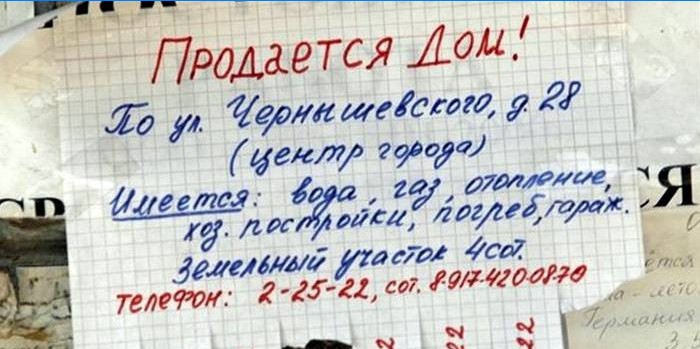 Продается Дом!
По ул. Чернышевского, д. 28
(центр города)
Имеется: вода, газ, отопление,
хоз. постройки, погреб, гараж.
Земельный участок 4 сот.
Телефон: 2-25-22, сот. 8-917-420-08-70
СЯ
Германия
22
22